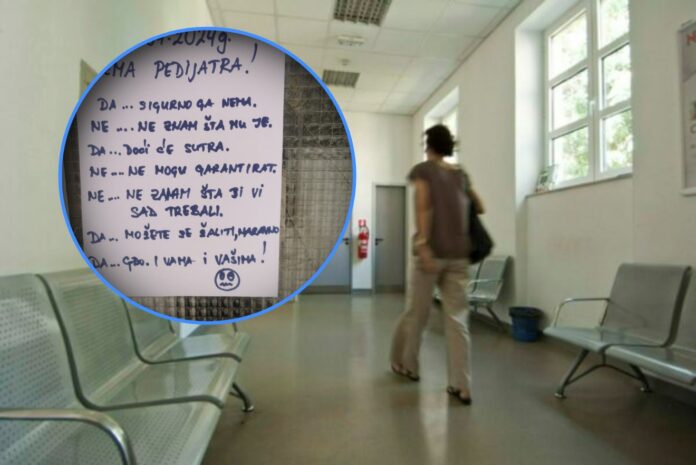 2024g.
EMA PEDIJATRA!
DA... SIGURNO GA NEMA.
NE.... NE ZNAM ŠTA MU JE.
DA... DOĆI ĆE SUTRA.
NE... NE MOGU GARANTIRAT.
NE... NE ZNAM ŠTA BI VI
SAD TREBALI.
DA... MOŽETE SE ŽALITI, NARAVNO
DA... GDO. I VAMA I VAŠIMA!